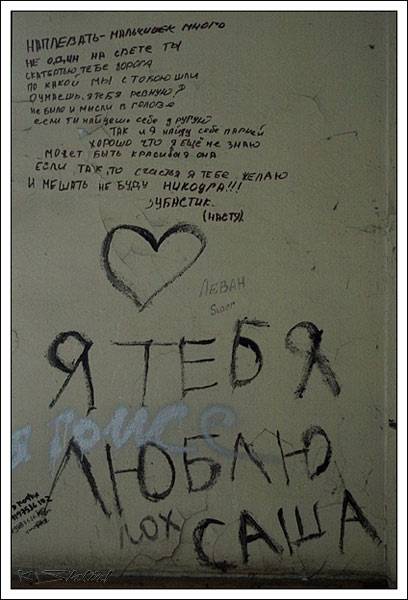 НАПЛЕВАТЬ- МАЛЬЧИШЕК МНОГО
НЕ ОДИН НА СВЕТЕ ТЫ
СКАТЕРТЬЮ ТЕБЕ ДОРОГА
ПО КАКОЙ МЫ С ТОБОЮ ШЛИ
ДУМАЕШЬ, Я ТЕБЯ РЕВНУЮ?
НЕ БЫЛО И МЫСЛИ В ГОЛОВЕ
ЕСЛИ ТЫ НАЙДЕШЬ СЕБЕ ДРУГУЮ
ТАК И Я НАЙДУ СЕБЕ ПАРНЕЙ
ХОРОШО ЧТО Я ЕЩЁ НЕ ЗНАЮ
МОЖЕТ БЫТЬ КРАСИВАЯ ОНА
ЕСЛИ ТАК, ТО СЧАСТЬЯ Я ТЕБЕ ЖЕЛАЮ
И МЕШАТЬ НЕ БУДУ НИКОГДА!!!
ЗУБАСТИК.
(НАСТЯ).
ЛЕВАН
Super
Я ТЕБЯ
ЛЮБЛЮ
ЛОХ САША